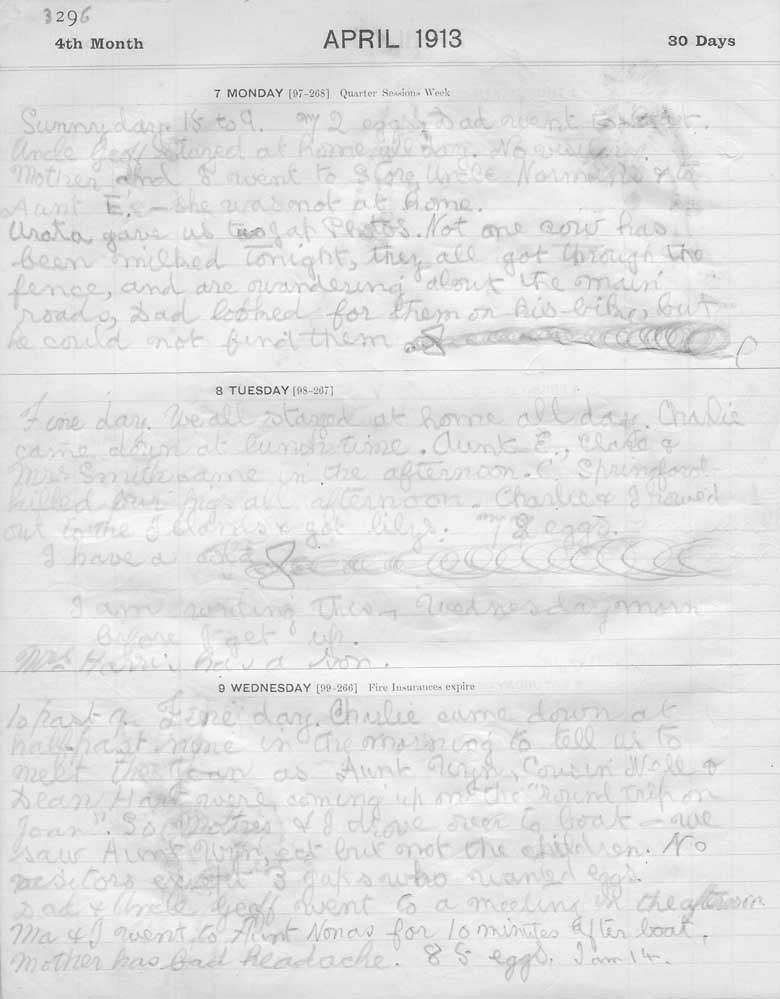 3296
4th Month APRIL 1913 30 Days
7 MONDAY [97-268] Quarter Sessions Week
Sunny day. 15 to 9. my 2 eggs, Dad went to
Uncle Geoff stayed at home all day. No visitors
Mother and I went to Store Uncle Norman's & to
Aunt E.e - she was not at home.
Urata gave us two Jap Photos. Not one cow has
been milked tonight, they all got through the
fence, and are wandering about the main
roads, Dad looked for them on his bike, but
he could not find them
8 TUESDAY [98-267]
Fine day. We all stayed at home all day. Charlie
came down at lunch time. Aunt E., Clare &
Mrs Smith came in the afternoon. C. Springford
killed our pigs all afternoon. Charlie & I rowed
out to the Islands & got lilys. my 2 eggs.
I have a cold
I am writing this, Wednesday morn
before I get up.
Mrs Harris has a son.
9 WEDNESDAY [99-266] Fire Insurances expire
10 past 9. Fine day. Charlie came down at
half past nine in the morning to tell us to
meet the Joan as Aunt Wyn, Cousin Nell &
Dean Hart were coming up on the "round trip on
Joan". So Mother & I drove over to boat - we
saw Aunt Wyn, ect but not the children. No
visitors except 3 Japs who wanted eggs.
Dad & Uncle Geoff went to a meeting in the afternoon.
Ma & I went to Aunt Nonas for 10 minutes after boat.
Mother has bad headache. 85 eggs. I am 14.